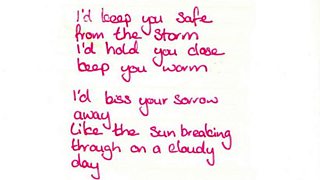 I'd keep you safe
from the storm
I'd hold you close
keep you warm
I'd kiss your sorrow
away
Like the sun breaking
through on a cloudy
day